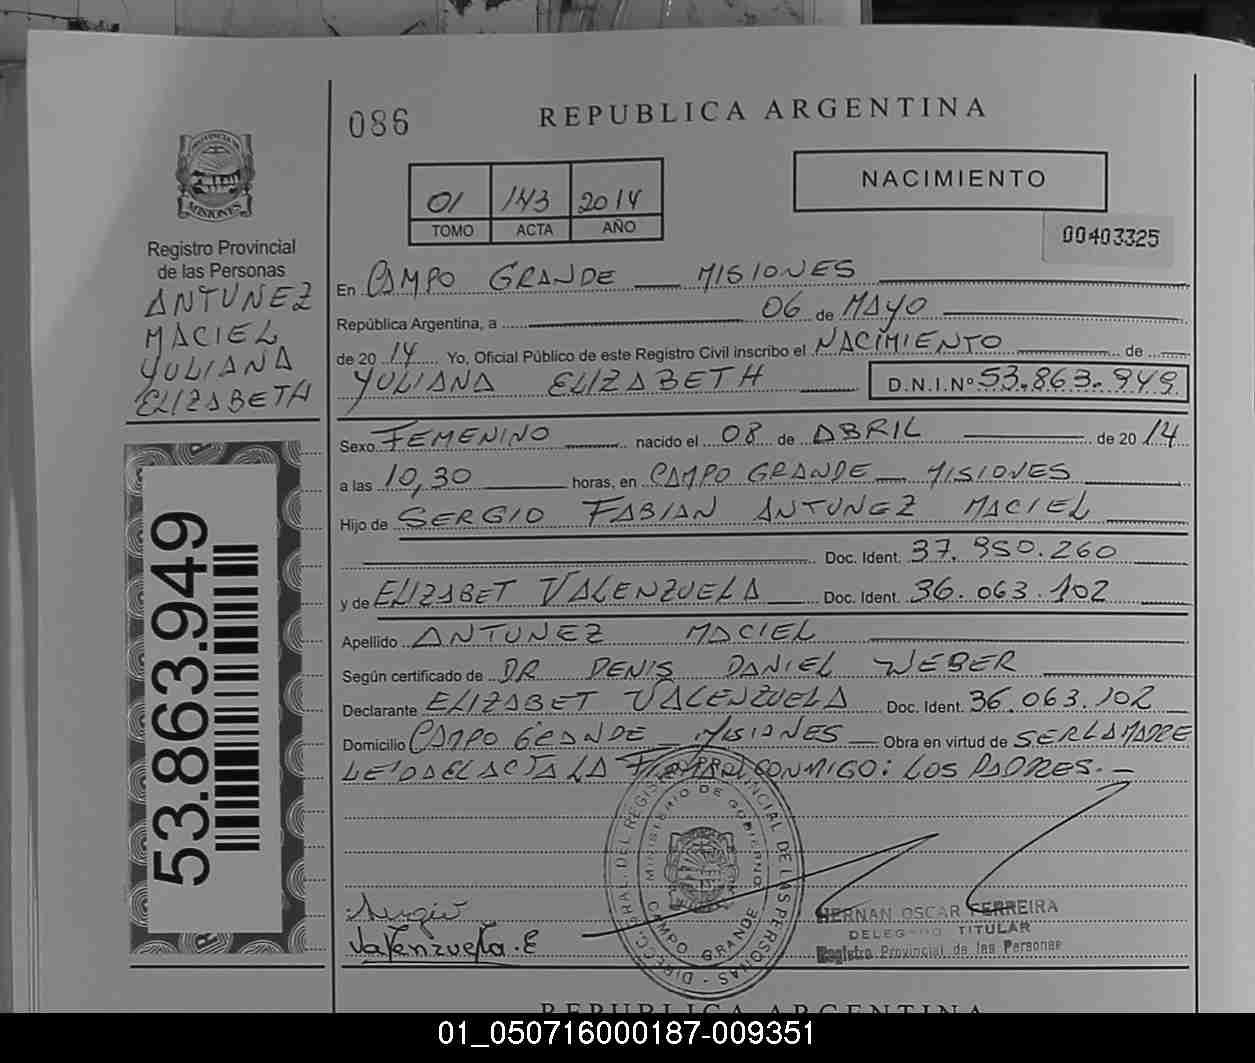 086
REPUBLICA ARGENTINA
PROVINCIA DE
MISIONES
Registro Provincial
de las Personas
ANTUNEZ
MACIEL
YULIANA
ELIZABETH
53.863.949
01 143 2014
TOMO ACTA AÑO
NACIMIENTO
00403325
En CAMPO GRANDE MISIONES
República Argentina, a 06 de MAYO
de 2014 Yo, Oficial Público de este Registro Civil inscribo el NACIMIENTO de
YULIANA ELIZABETH D.N.I.Nº 53.863.949
Sexo FEMENINO nacido el 08 de ABRIL de 2014
a las 10,30 horas, en CAMPO GRANDE MISIONES
Hijo de SERGIO FABIAN ANTUNEZ MACIEL
Doc. Ident. 37.950.260
y de ELIZABET VALENZUELA Doc. Ident. 36.063.102
Apellido ANTUNEZ MACIEL
Según certificado de DR DENIS DANIEL WEBER
Declarante ELIZABET VALENZUELA Doc. Ident. 36.063.102
Domicilio CAMPO GRANDE MISIONES Obra en virtud de SER LA MADRE
LEIDA EL ACTA LA FIRMAN CONMIGO: LOS PADRES.-
DIRECC. GRAL. DEL REGIST. PROVINCIAL DE LAS PERSONAS
MINISTERIO DE GOBIERNO
CAMPO GRANDE
Sergio
Valenzuela.E
HERNAN OSCAR FERREIRA
DELEGADO TITULAR
Registro Provincial de las Personas
REPUBLICA ARGENTINA
01_050716000187-009351